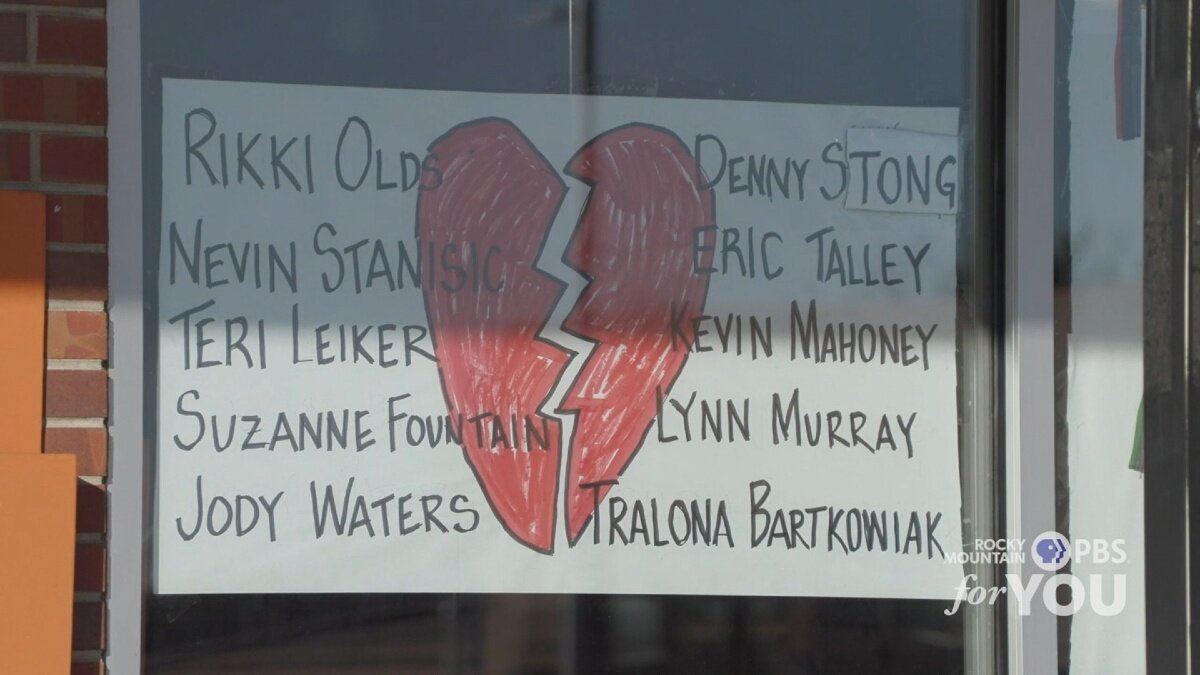 RIKKI OLDS
NEVIN STANISIC
TERI LEIKER
SUZANNE FOUNTAIN
JODY WATERS
DENNY STONG
ERIC TALLEY
KEVIN MAHONEY
LYNN MURRAY
TRALONA BARTKOWIAK
ROCKY MOUNTAIN PBS
for YOU